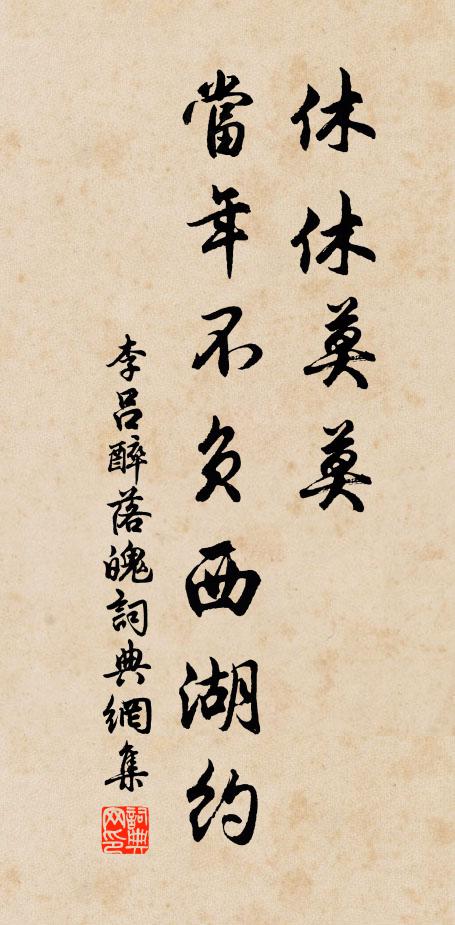 休休莫莫
當年不負西湖約
李吕醉落魄詞典網集
詞典网印